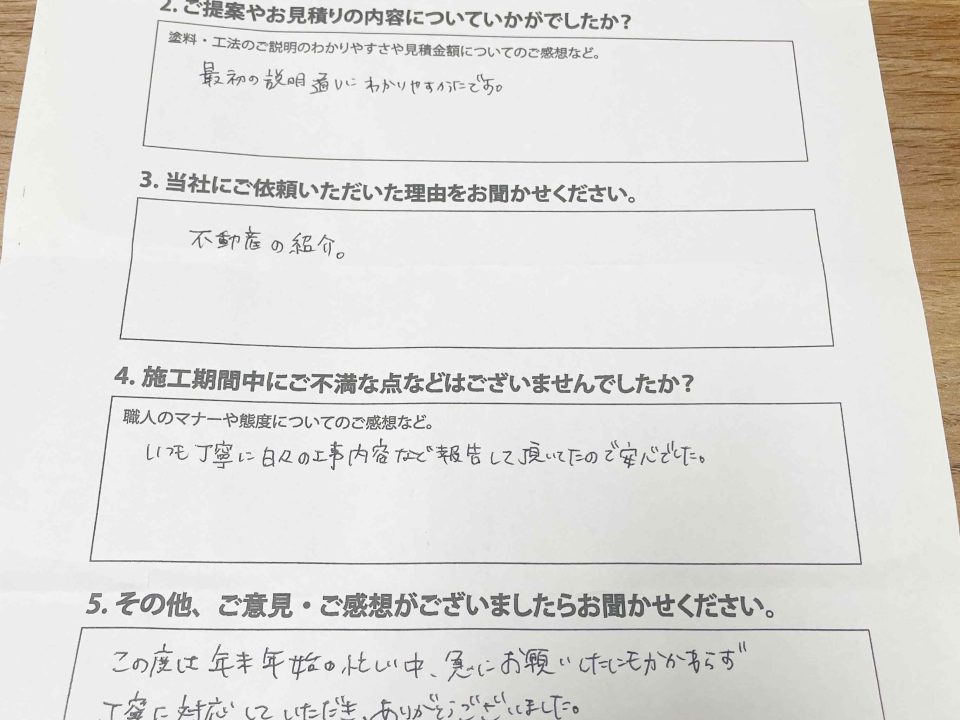 2. ご提案やお見積りの内容についていかがでしたか？
塗料・工法のご説明のわかりやすさや見積金額についてのご感想など。
最初の説明通りにわかりやすかったです。
3. 当社にご依頼いただいた理由をお聞かせください。
不動産の紹介。
4. 施工期間中にご不満な点などはございませんでしたか？
職人のマナーや態度についてのご感想など。
いつも丁寧に日々の工事内容など報告して頂いてたので安心でした。
5. その他、ご意見・ご感想がございましたらお聞かせください。
この度は年末年始の忙しい中、急にお願いしたにもかかわらず
丁寧に対応していただき、ありがとうございました。